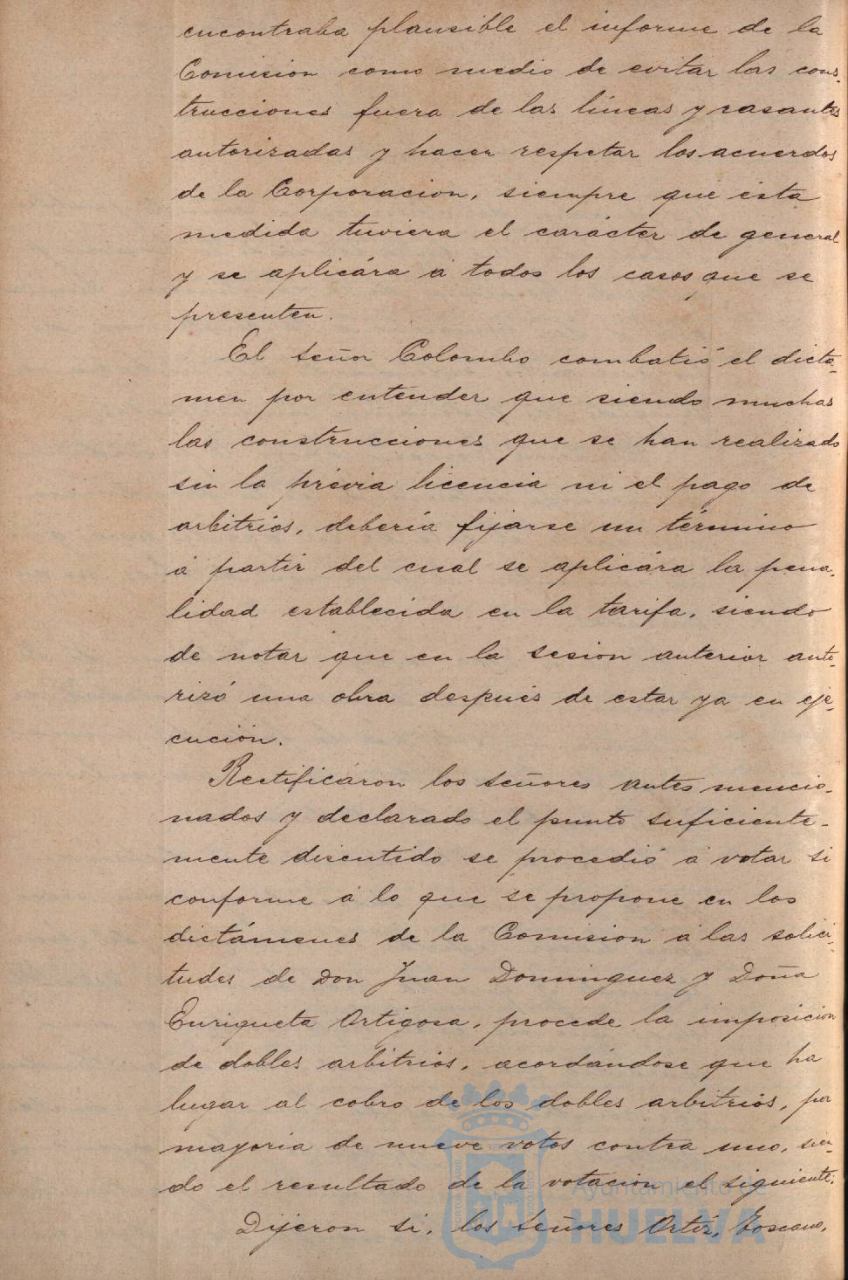 encontraba plausible el informe de la
Comision como medio de evitar las cons-
trucciones fuera de las líneas y rasantes
autorizadas y hacer respetar los acuerdos
de la Corporacion, siempre que ésta
medida tuviera el carácter de general
y se aplicára á todos los casos que se
presenten.
El señor Colombo combatió el dictá-
men por entender que siendo muchas
las construcciones que se han realizado
sin la prévia licencia ni el pago de
arbitrios, debería fijarse un término
á partir del cual se aplicára la pena-
lidad establecida en la tarifa, siendo
de notar que en la sesion anterior auto-
rizó una obra después de estar ya en eje-
cución.
Rectificáron los señores antes mencio-
nados y declarado el punto suficiente-
mente discutido se procedió á votar si
conforme á lo que se propone en los
dictámenes de la Comision á las solici-
tudes de Don Juan Dominguez y Doña
Enriqueta Ortigosa, procede la imposicion
de dobles arbitrios, acordándose que ha
lugar al cobro de los dobles arbitrios, por
mayoria de nueve votos contra uno, sien-
do el resultado de la votacion el siguiente:
Dijeron si, los señores Ortiz, Toscano,
Ayuntamiento de
HUELVA